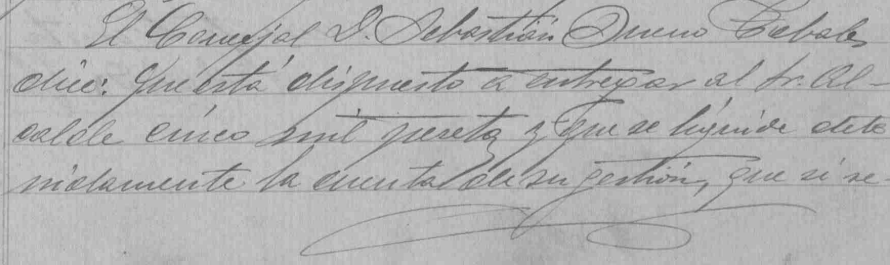 El Concejal D. Sebastián Bueno Cabales
dice: que está dispuesto a entregar al Sr. Al-
calde cinco mil pesetas y que se liquide dete
nidamente la cuenta de su gestión, que si se-